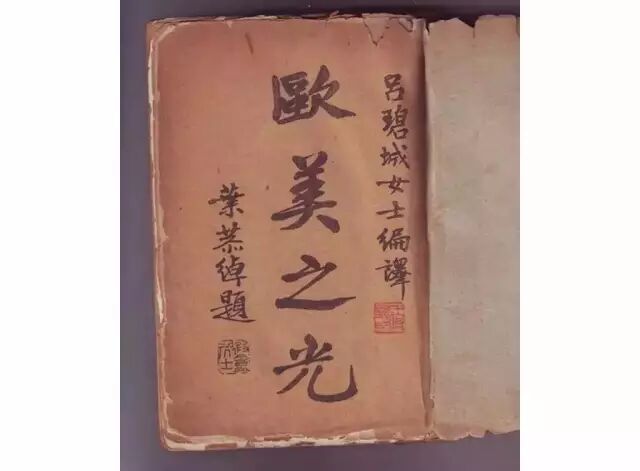 呂碧城女士編譯
歐美之光
葉恭綽題